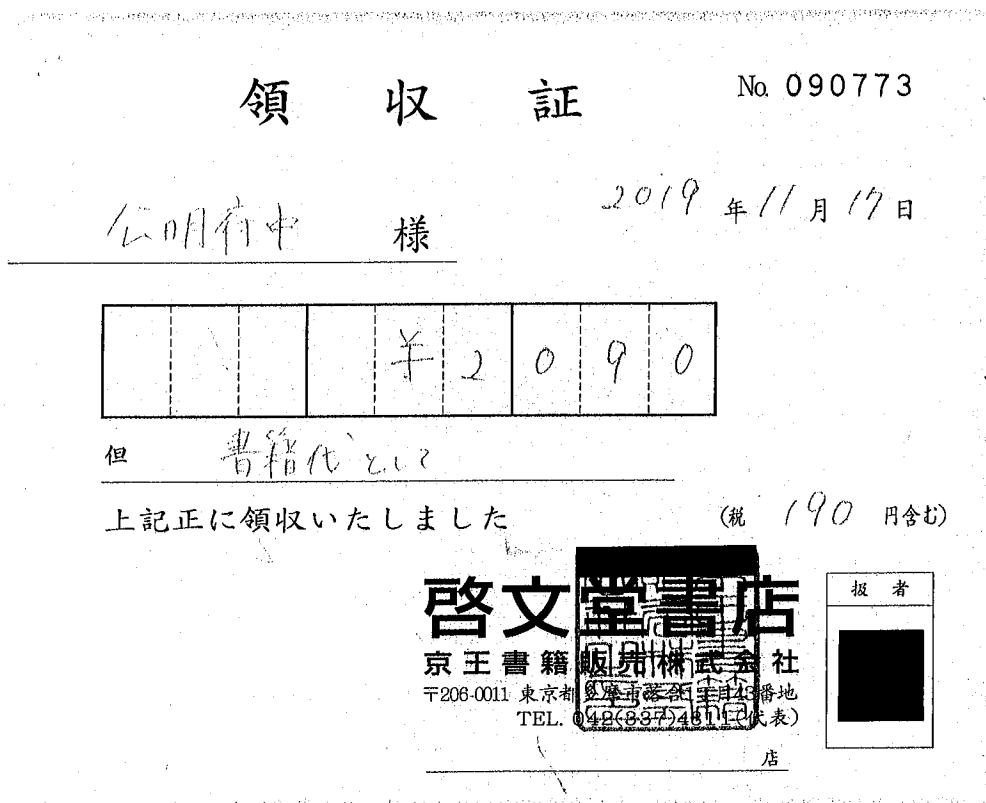 領収証
No. 090773
公明府中 様
2019年11月17日
¥2090
但 書籍代として
上記正に領収いたしました
(税 190 円含む)
啓文堂書店
扱者
京王書籍販売株式会社
〒206-0011 東京都多摩市落合1丁目43番地
TEL. 042(337)4811(代表)
店